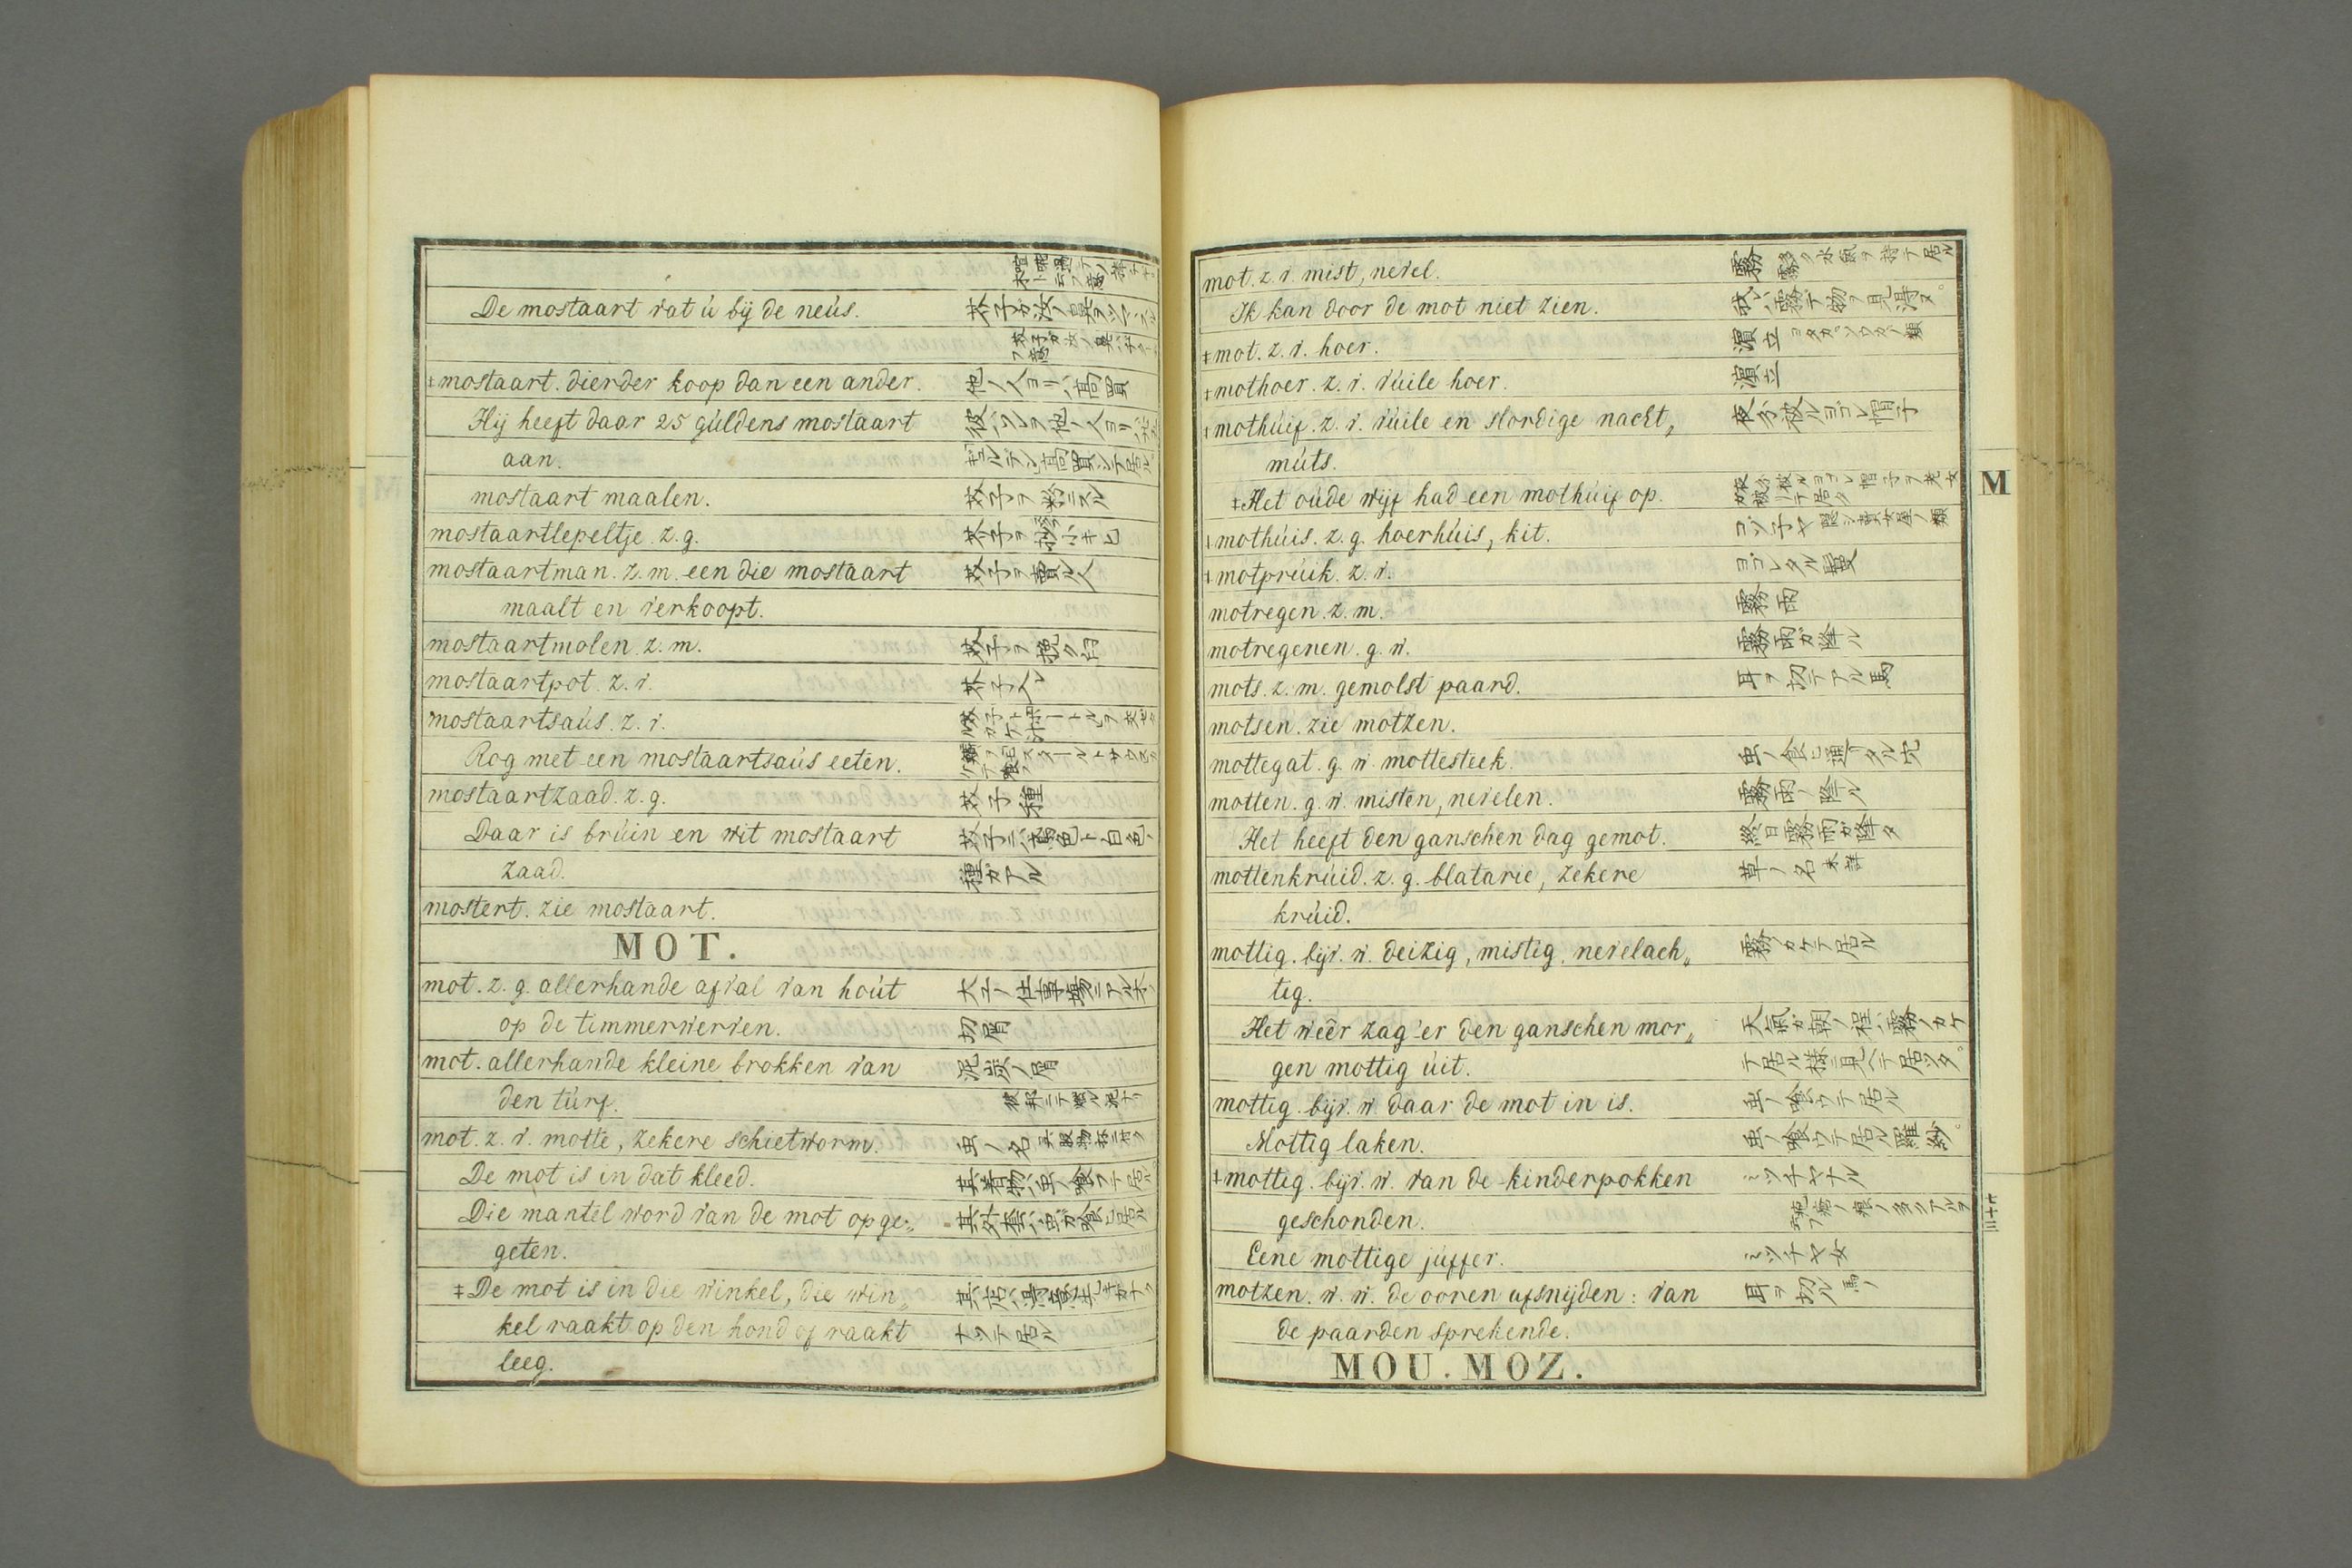 De mostaart vat ú bij de neús. 芥子ガ汝ノ鼻ヲツマヽスル
‡mostaart. dierder koop dan een ander. 他ノ人ヨリハ高買
Hij heeft daar 25 gúldens mostaart
aan. ギユルデン高買シテ居ル
mostaart maalen. 芥子ヲ粉ニスル
mostaartlepeltje. z. g. 小キ匕
mostaartman. z. m. een die mostaart 芥子ヲ賣ル人
maalt en verkoopt.
mostaartmolen. z. m. 芥子ヲ挽ク臼
mostaartpot. z. v. 芥子入レ
mostaartsaús. z. v.
Rog met een mostaartsaús eeten.
mostaartzaad. z. g. 芥子種
Daar is brúin en wit mostaart 芥子ニハ鳶色ト白色ノ
zaad. 種ガアル
mostert. zie mostaart.
MOT.
mot. z. g. allerhande afval van hoút 大工ノ仕事場ニアル木ノ
op de timmerwerven. 切屑
mot. allerhande kleine brokken van 泥炭ノ屑
den túrf.
mot. z. v. motte, zekere schietworm. 虫ノ名
De mot is in dat kleed. 其着物ハ虫ノ喰フテ居ル
Die mantel word van de mot opge„ 其外套ハ虫ガ喰ヒ居ル
geten.
‡De mot is in die winkel, die win„
kel raakt op den hond of raakt ナツテ居ル
leeg.
mot. z. v. mist, nevel. 霧 霧多ク水氣ヲ持テ居ル
Ik kan door de mot niet zien. 我ハ霧デ物ヲ見得ヌ。
‡mot. z. v. hoer. 濵立
‡mothoer. z. v. vúile hoer. 濵立
‡mothúif. z. v. vúile en slordige nacht„ 夜分被ルヨゴレ帽子
múts.
‡Het oúde wijf had een mothúif op.
‡mothúis. z. g. hoerhúis, kit.
‡motprúik. z. v. ヨゴレタル鬘
motregen. z. m. 霧雨
motregenen. g. w. 霧雨ガ降ル
mots. z. m. gemolst paard. 耳ヲ切テアル馬
motsen. zie motzen.
mottegat. g. w. mottesteek. 虫ノ食ヒ通リタル穴
motten. g. w. misten, nevelen. 霧雨ノ降ル
Het heeft den ganschen dag gemot. 終日霧雨ガ降タ
mottenkrúid. z. g. blatarie, zekere 草ノ名 未詳
krúid.
mottig. bijv. w. deizig, mistig, nevelach„ 霧ノカケテ居ル
tig.
Het weêr zag 'er den ganschen mor„ 天氣ガ朝ノ程ハ霧ノカケ
gen mottig úit. テ居ル様ニ見ヘテ居ツタ。
mottig. bijv. w. daar de mot in is. 虫ノ喰ウテ居ル
Mottig laken. 虫ノ喰ウテ居ル羅紗。
‡mottig. bijv. w. van de kinderpokken ミツチヤナル
geschonden.
Eene mottige júffer. ミツチヤ女
motzen. w. w. de ooren afsnijden: van 馬ノ耳ヲ切ル
de paarden sprekende.
MOU. MOZ.
M
七十三